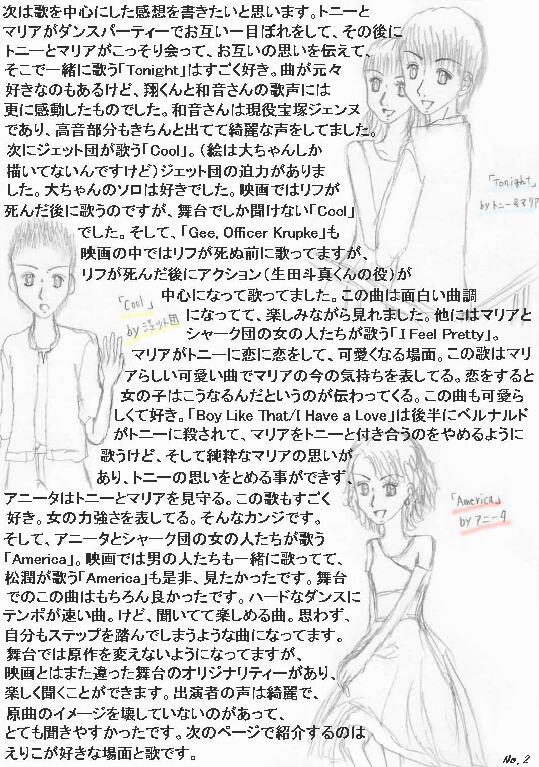 次は歌を中心にした感想を書きたいと思います。トニーと
マリアがダンスパーティーでお互い一目ぼれをして、その後に
トニーとマリアがこっそり会って、お互いの思いを伝えて、
そこで一緒に歌う「Tonight」はすごく好き。曲が元々
好きなのもあるけど、翔くんと和音さんの歌声には
更に感動したものでした。和音さんは現役宝塚ジェンヌ
であり、高音部分もきちんと出てて綺麗な声をしてました。
次にジェット団が歌う「Cool」。（絵は大ちゃんしか
描いてないんですけど）ジェット団の迫力がありま
した。大ちゃんのソロは好きでした。映画ではリフが
死んだ後に歌うのですが、舞台でしか聞けない「Cool」
でした。そして、「Gee, Officer Krupke」も
映画の中ではリフが死ぬ前に歌ってますが、
リフが死んだ後にアクション（生田斗真くんの役）が
中心になって歌ってました。この曲は面白い曲調
になってて、楽しみながら見れました。他にはマリアと
シャーク団の女の人たちが歌う「I Feel Pretty」。
マリアがトニーに恋に恋をして、可愛くなる場面。この歌はマリ
アらしい可愛い曲でマリアの今の気持ちを表してる。恋をすると
女の子はこうなるんだというのが伝わってくる。この曲も可愛ら
しくて好き。「Boy Like That/I Have a Love」は後半にベルナルド
がトニーに殺されて、マリアをトニーと付き合うのをやめるように
歌うけど、そして純粋なマリアの思いが
あり、トニーの思いをとめる事ができず、
アニータはトニーとマリアを見守る。この歌もすごく
好き。女の力強さを表してる。そんなカンジです。
そして、アニータとシャーク団の女の人たちが歌う
「America」。映画では男の人たちも一緒に歌ってて、
松潤が歌う「America」も是非、見たかったです。舞台
でのこの曲はもちろん良かったです。ハードなダンスに
テンポが速い曲。けど、聞いてて楽しめる曲。思わず、
自分もステップを踏んでしまうような曲になってます。
舞台では原作を変えないようになってますが、
映画とはまた違った舞台のオリジナリティーがあり、
楽しく聞くことができます。出演者の声は綺麗で、
原曲のイメージを壊していないのがあって、
とても聞きやすかったです。次のページで紹介するのは
えりこが好きな場面と歌です。
「Tonight」
by トニー&マリア
「Cool」
by ジェット団
「America」
by アニータ
No. 2